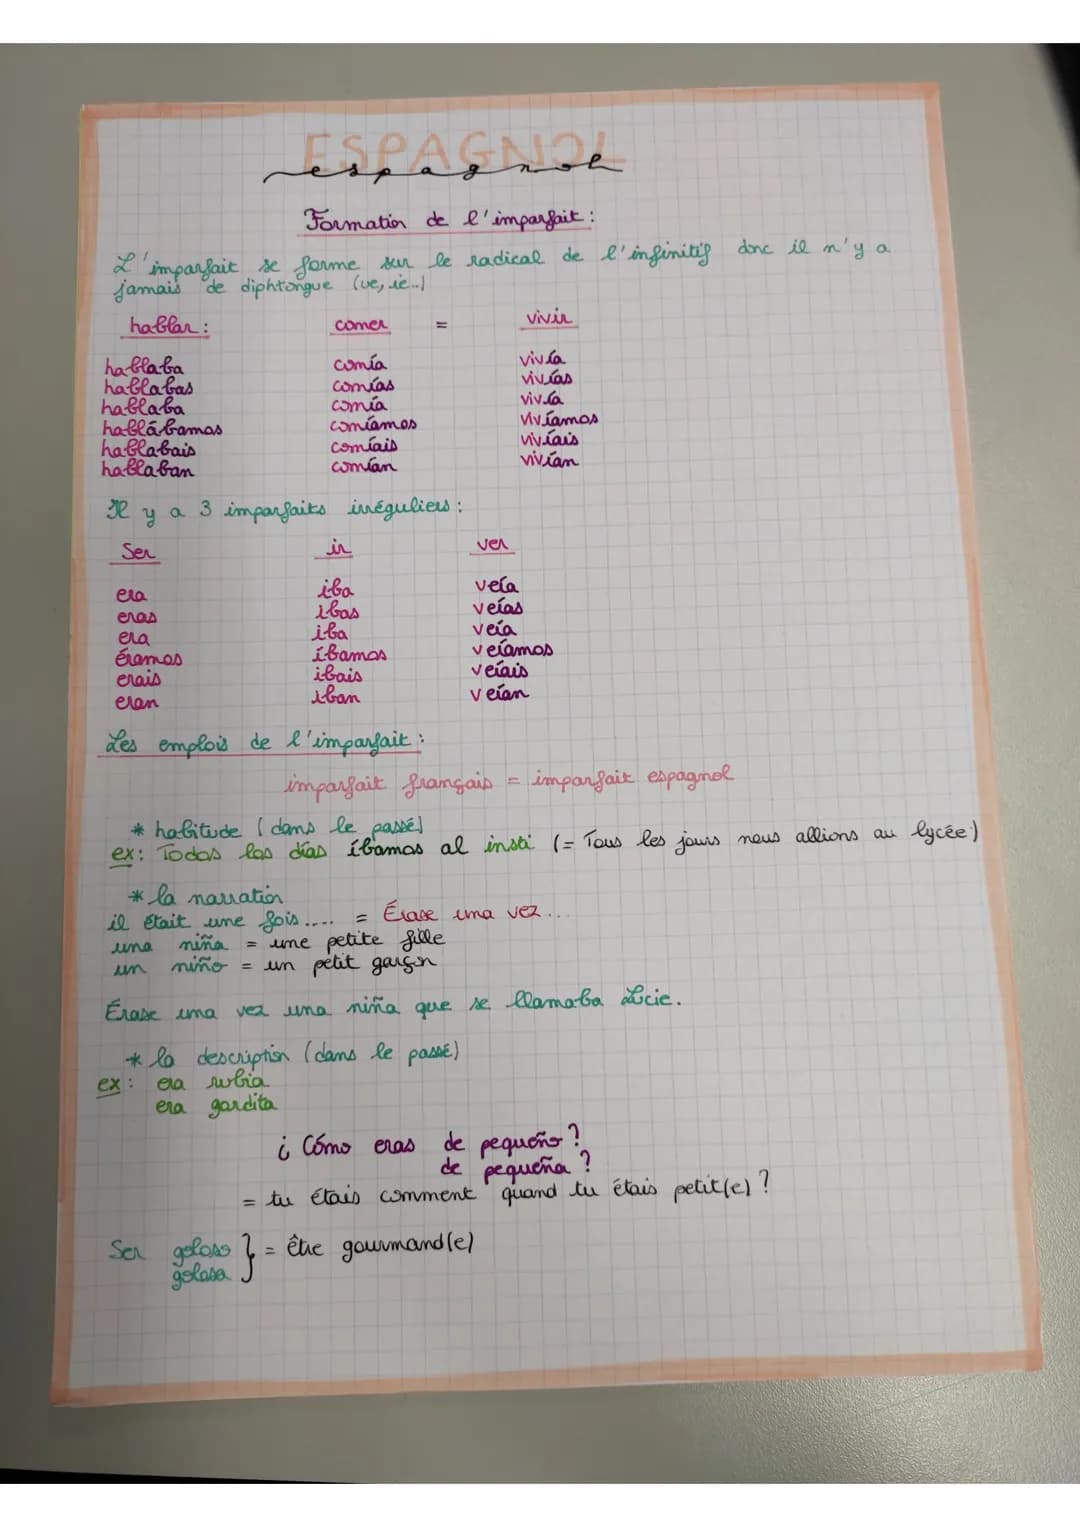 ESPAGNOL
espagnol
Formation de l'imparfait :
L'imparfait se forme sur le radical de l'infinitif donc il n'y a
jamais de diphtongue (ue, ie..)
hablar : comer = vivir
hablaba comía vivía
hablabas comías vivías
hablaba comía vivía
hablábamos comíamos vivíamos
hablabais comíais vivíais
hablaban comían vivían
Il y a 3 imparfaits irréguliers :
Ser ir ver
era iba veía
eras ibas veías
era iba veía
éramos íbamos veíamos
erais ibais veíais
eran iban veían
Les emplois de l'imparfait :
imparfait français = imparfait espagnol
* habitude (dans le passé)
ex : Todos los días íbamos al insti (= Tous les jours nous allions au lycée)
* la narration
il était une fois..... = Érase una vez...
una niña = une petite fille
un niño = un petit garçon
Érase una vez una niña que se llamaba Lucie.
* la description (dans le passé)
ex : era rubia
era gordita
¿ Cómo eras de pequeño ?
de pequeña ?
= tu étais comment quand tu étais petit(e) ?
Ser goloso } = être gourmand(e)
golosa